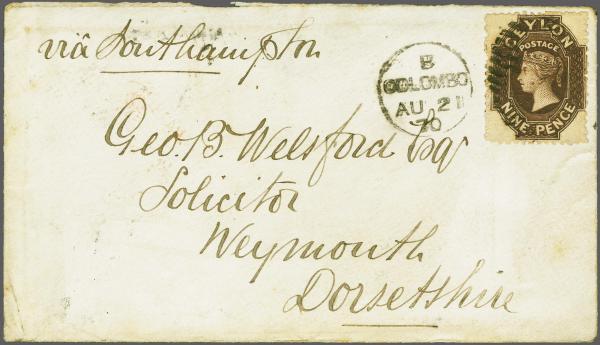 viâ Southampton
B
COLOMBO
AU 21
70
CEYLON
POSTAGE
NINE PENCE
Geo. B. Welsford Esqr
Solicitor
Weymouth
Dorsetshire